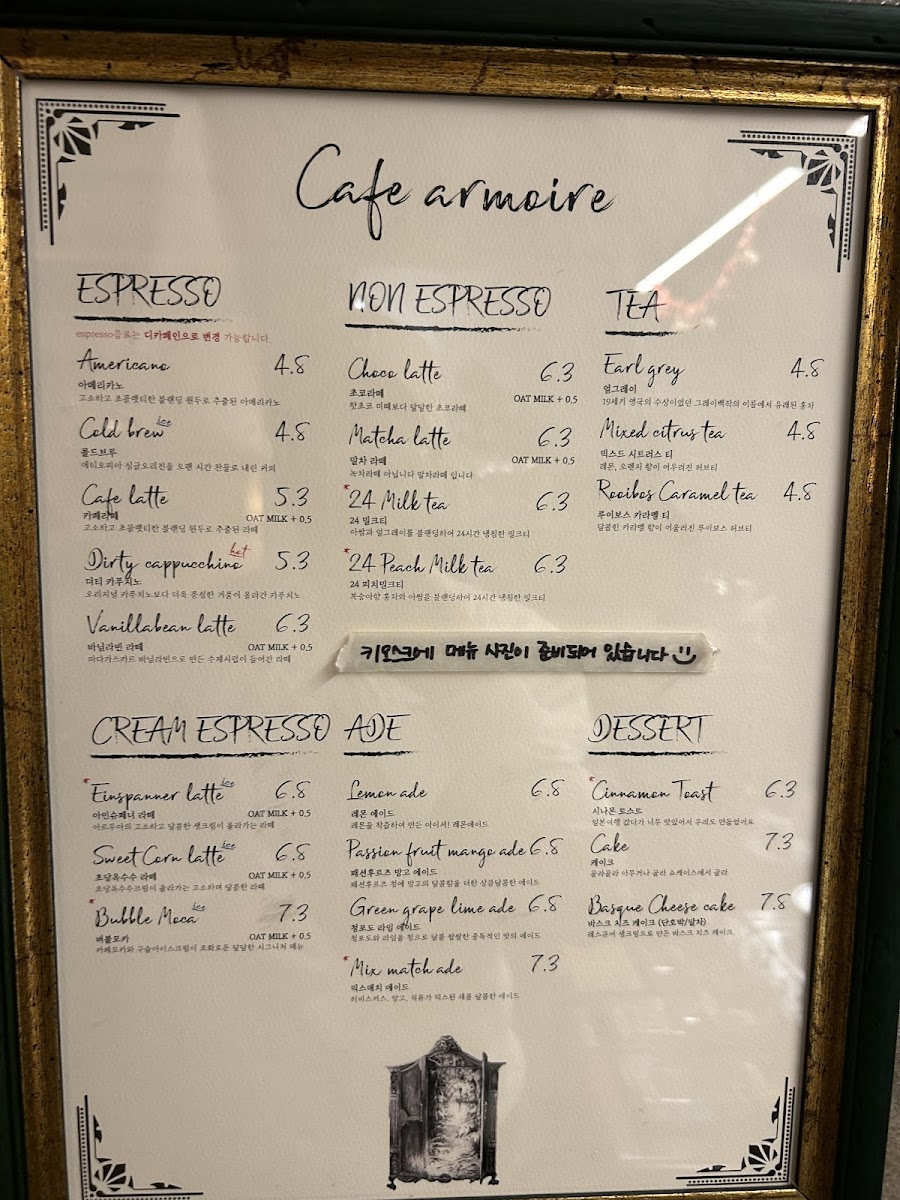 Cafe armoire
ESPRESSO
espresso음료는 디카페인으로 변경 가능합니다.
Americano 4.8
아메리카노
고소하고 초콜렛티한 블랜딩 원두로 추출된 아메리카노
Cold brew ice 4.8
콜드브루
에티오피아 싱글오리진을 오랜 시간 찬물로 내린 커피
Cafe latte 5.3
카페라떼 OAT MILK + 0.5
고소하고 초콜렛티한 블랜딩 원두로 추출된 라떼
Dirty cappucchino hot 5.3
더티 카푸치노
오리지널 카푸치노보다 더욱 풍성한 거품이 올라간 카푸치노
Vanillabean latte 6.3
바닐라빈 라떼 OAT MILK + 0.5
마다가스카르 바닐라빈으로 만든 수제시럽이 들어간 라떼
NON ESPRESSO
Choco latte 6.3
초코라떼 OAT MILK + 0.5
핫초코 미떼보다 달달한 초코라떼
Matcha latte 6.3
말차 라떼 OAT MILK + 0.5
녹차라떼 아닙니다 말차라떼 입니다
*24 Milk tea 6.3
24 밀크티
아쌈과 얼그레이를 블랜딩하여 24시간 냉침한 밀크티
*24 Peach Milk tea 6.3
24 피치밀크티
복숭아향 홍차와 아쌈을 블랜딩하여 24시간 냉침한 밀크티
TEA
Earl grey 4.8
얼그레이
19세기 영국의 수상이었던 그레이백작의 이름에서 유래된 홍차
Mixed citrus tea 4.8
믹스드 시트러스 티
레몬, 오렌지 향이 어우러진 허브티
Rooibos Caramel tea 4.8
루이보스 카라멜 티
달콤한 카라멜 향이 어울러진 루이보스 허브티
키오스크에 메뉴 사진이 준비되어 있습니다
CREAM ESPRESSO
*Einspanner latte ice 6.8
아인슈페너 라떼 OAT MILK + 0.5
아르무아의 고소하고 달콤한 생크림이 올라가는 라떼
Sweet Corn latte ice 6.8
초당옥수수 라떼 OAT MILK + 0.5
초당옥수수크림이 올라가는 고소하며 달콤한 라떼
*Bubble Moca ice 7.3
버블모카 OAT MILK + 0.5
카페모카와 구슬아이스크림이 조화로운 달달한 시그니처 메뉴
ADE
Lemon ade 6.8
레몬 에이드
레몬을 착즙하여 만든 아이셔! 레몬에이드
Passion fruit mango ade 6.8
패션후르츠 망고 에이드
패션후르츠 청에 망고의 달콤함을 더한 상큼달콤한 에이드
Green grape lime ade 6.8
청포도 라임 에이드
청포도와 라임을 청으로 달콤 쌉쌀한 중독적인 맛의 에이드
*Mix match ade 7.3
믹스매치 에이드
히비스커스, 망고, 석류가 믹스된 새콤 달콤한 에이드
DESSERT
*Cinnamon Toast 6.3
시나몬 토스트
일본여행 갔다가 너무 맛있어서 우리도 만들었어요
Cake 7.3
케이크
골라골라 아무거나 골라 쇼케이스에서 골라
Basque Cheese cake 7.8
바스크 치즈 케이크 (단호박/말차)
레스큐어 생크림으로 만든 바스크 치즈 케이크